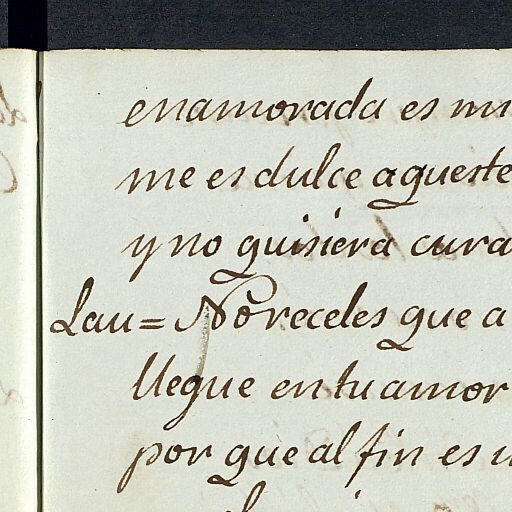 enamorada es
me es dulce aqueste
y no quisiera
Lau= No receles que a
llegue en tu amor
por que al fin es